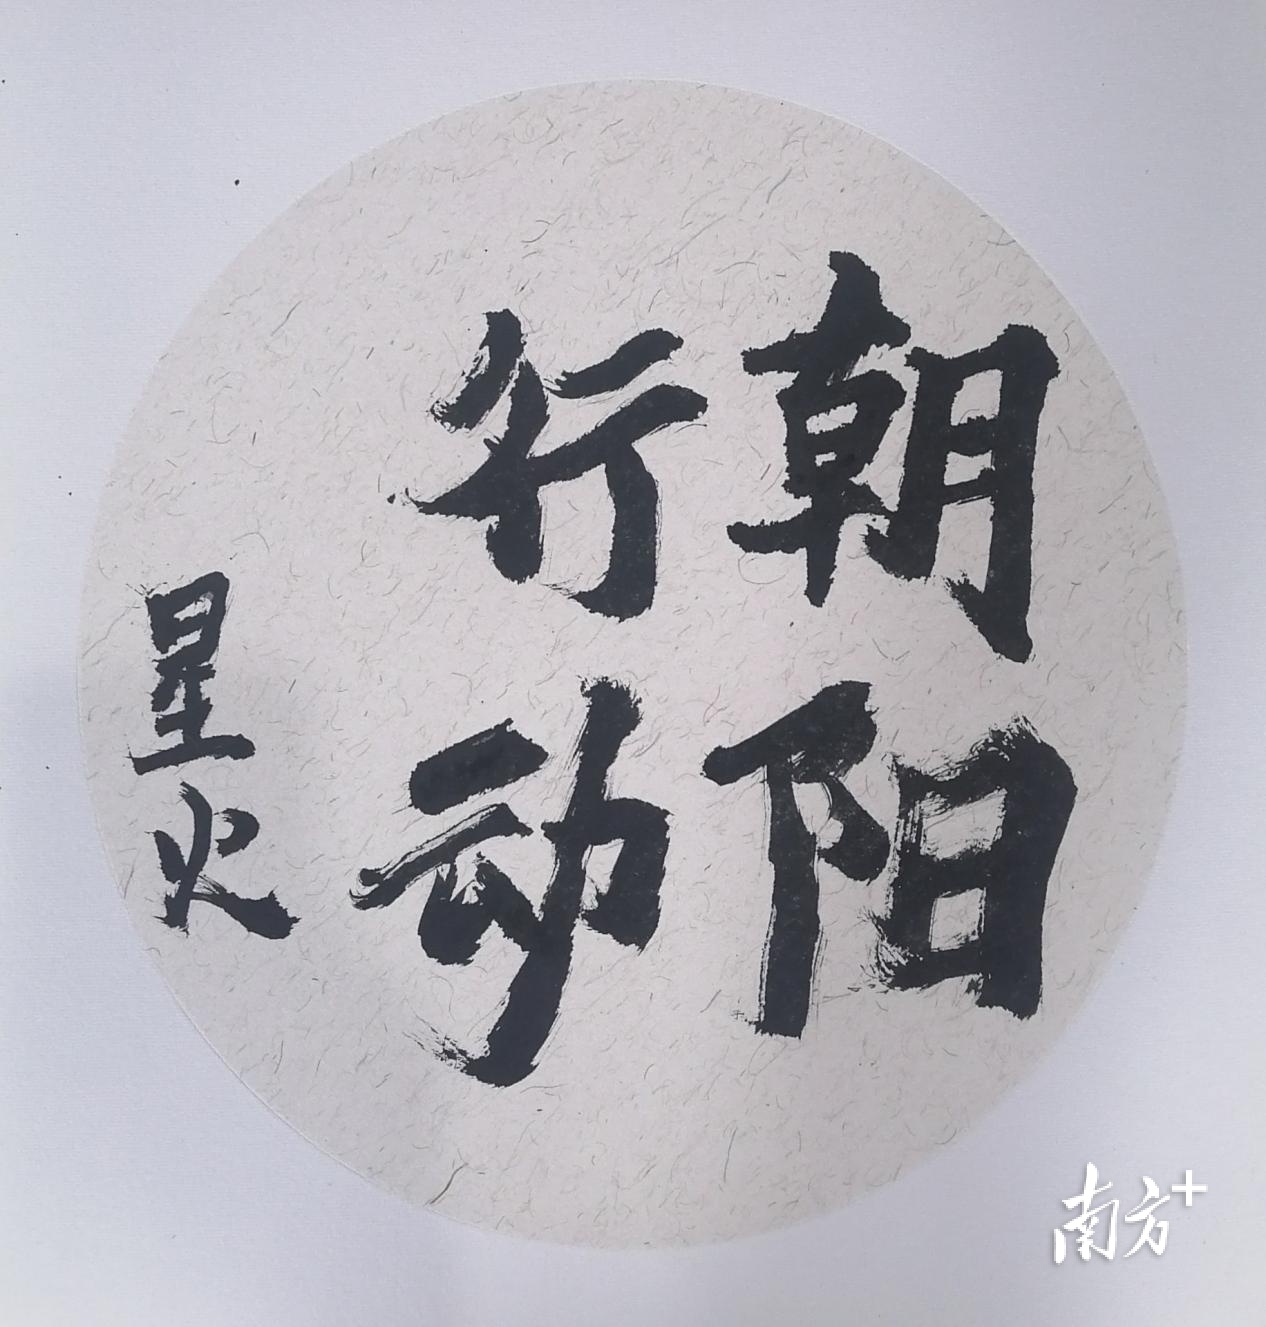 朝阳
行动
星火
南方+